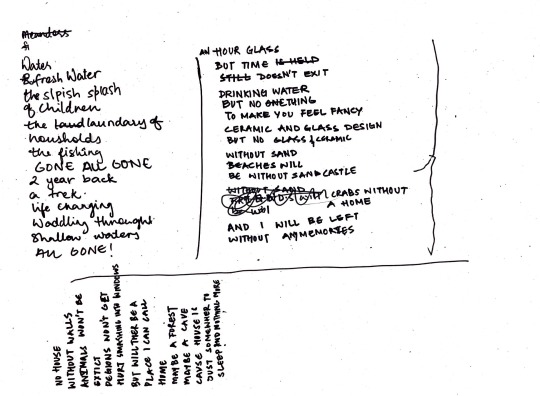 Water
Fresh Water
the slpish splash
of Children
the hand laundary of
housholds
the fishing
GONE ALL GONE
2 year back
a trek.
life changing
Waddling throught
Shallow waters
ALL GONE!
AN HOUR GLASS
BUT TIME IS HELD
STILL DOESN'T EXIT
DRINKING WATER
BUT NO ONETHING
TO MAKE YOU FEEL FANCY
CERAMIC AND GLASS DESIGN
BUT NO GLASS & CERAMIC
WITHOUT SAND
BEACHES WILL
BE WITHOUT SANDCASTLE
WITHOUT SAND
CRABS WITHOUT
A HOME
AND I WILL BE LEFT
WITHOUT ANY MEMORIES
NO HOUSE
WITHOUT WALLS
ANIMALS WON'T BE
EXTICT
PEGIONS WON'T GET
HURT SMASHING INTO WINDOWS
BUT WILL THER BE A
PLACE I CAN CALL
HOME
MAYBE A FOREST
MAYBE A CAVE
CAUSE HOUSE IS
JUST SOMEWHER TO
SLEEP AND NOTHING MORE